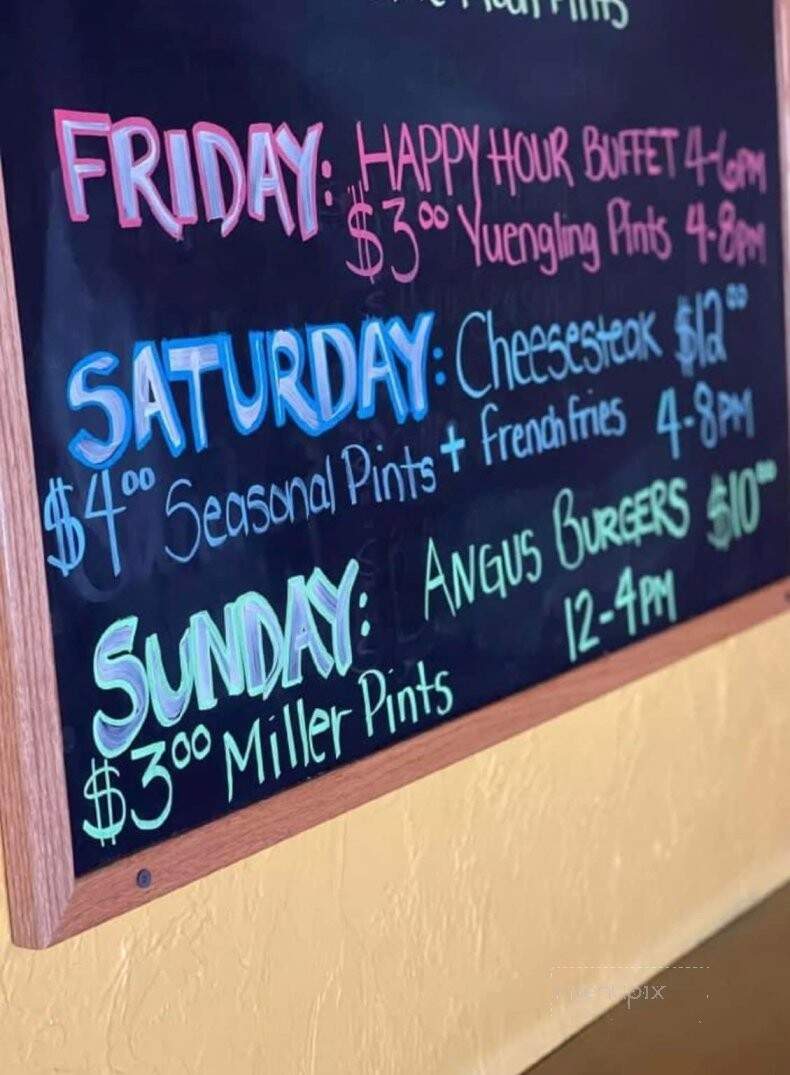 Pints
FRIDAY: HAPPY HOUR BUFFET 4-6PM
$3.00 Yuengling Pints 4-8PM
SATURDAY: Cheesesteak $12.00
$4.00 Seasonal Pints + french fries 4-8PM
SUNDAY: ANGUS BURGERS $10.00
12-4PM
$3.00 Miller Pints